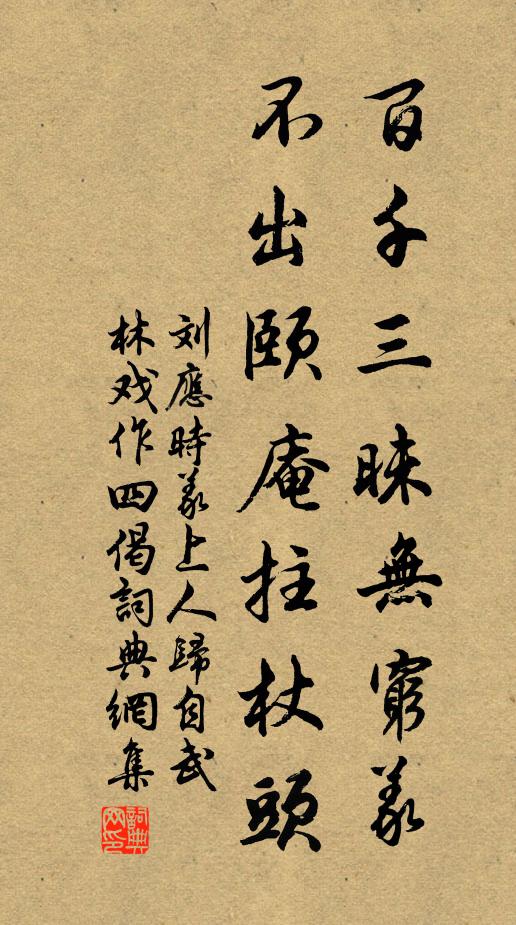 百千三昧無窮義
不出頤庵拄杖頭
刘應時義上人歸自武
林戏作四偈詞典網集
詞典网印